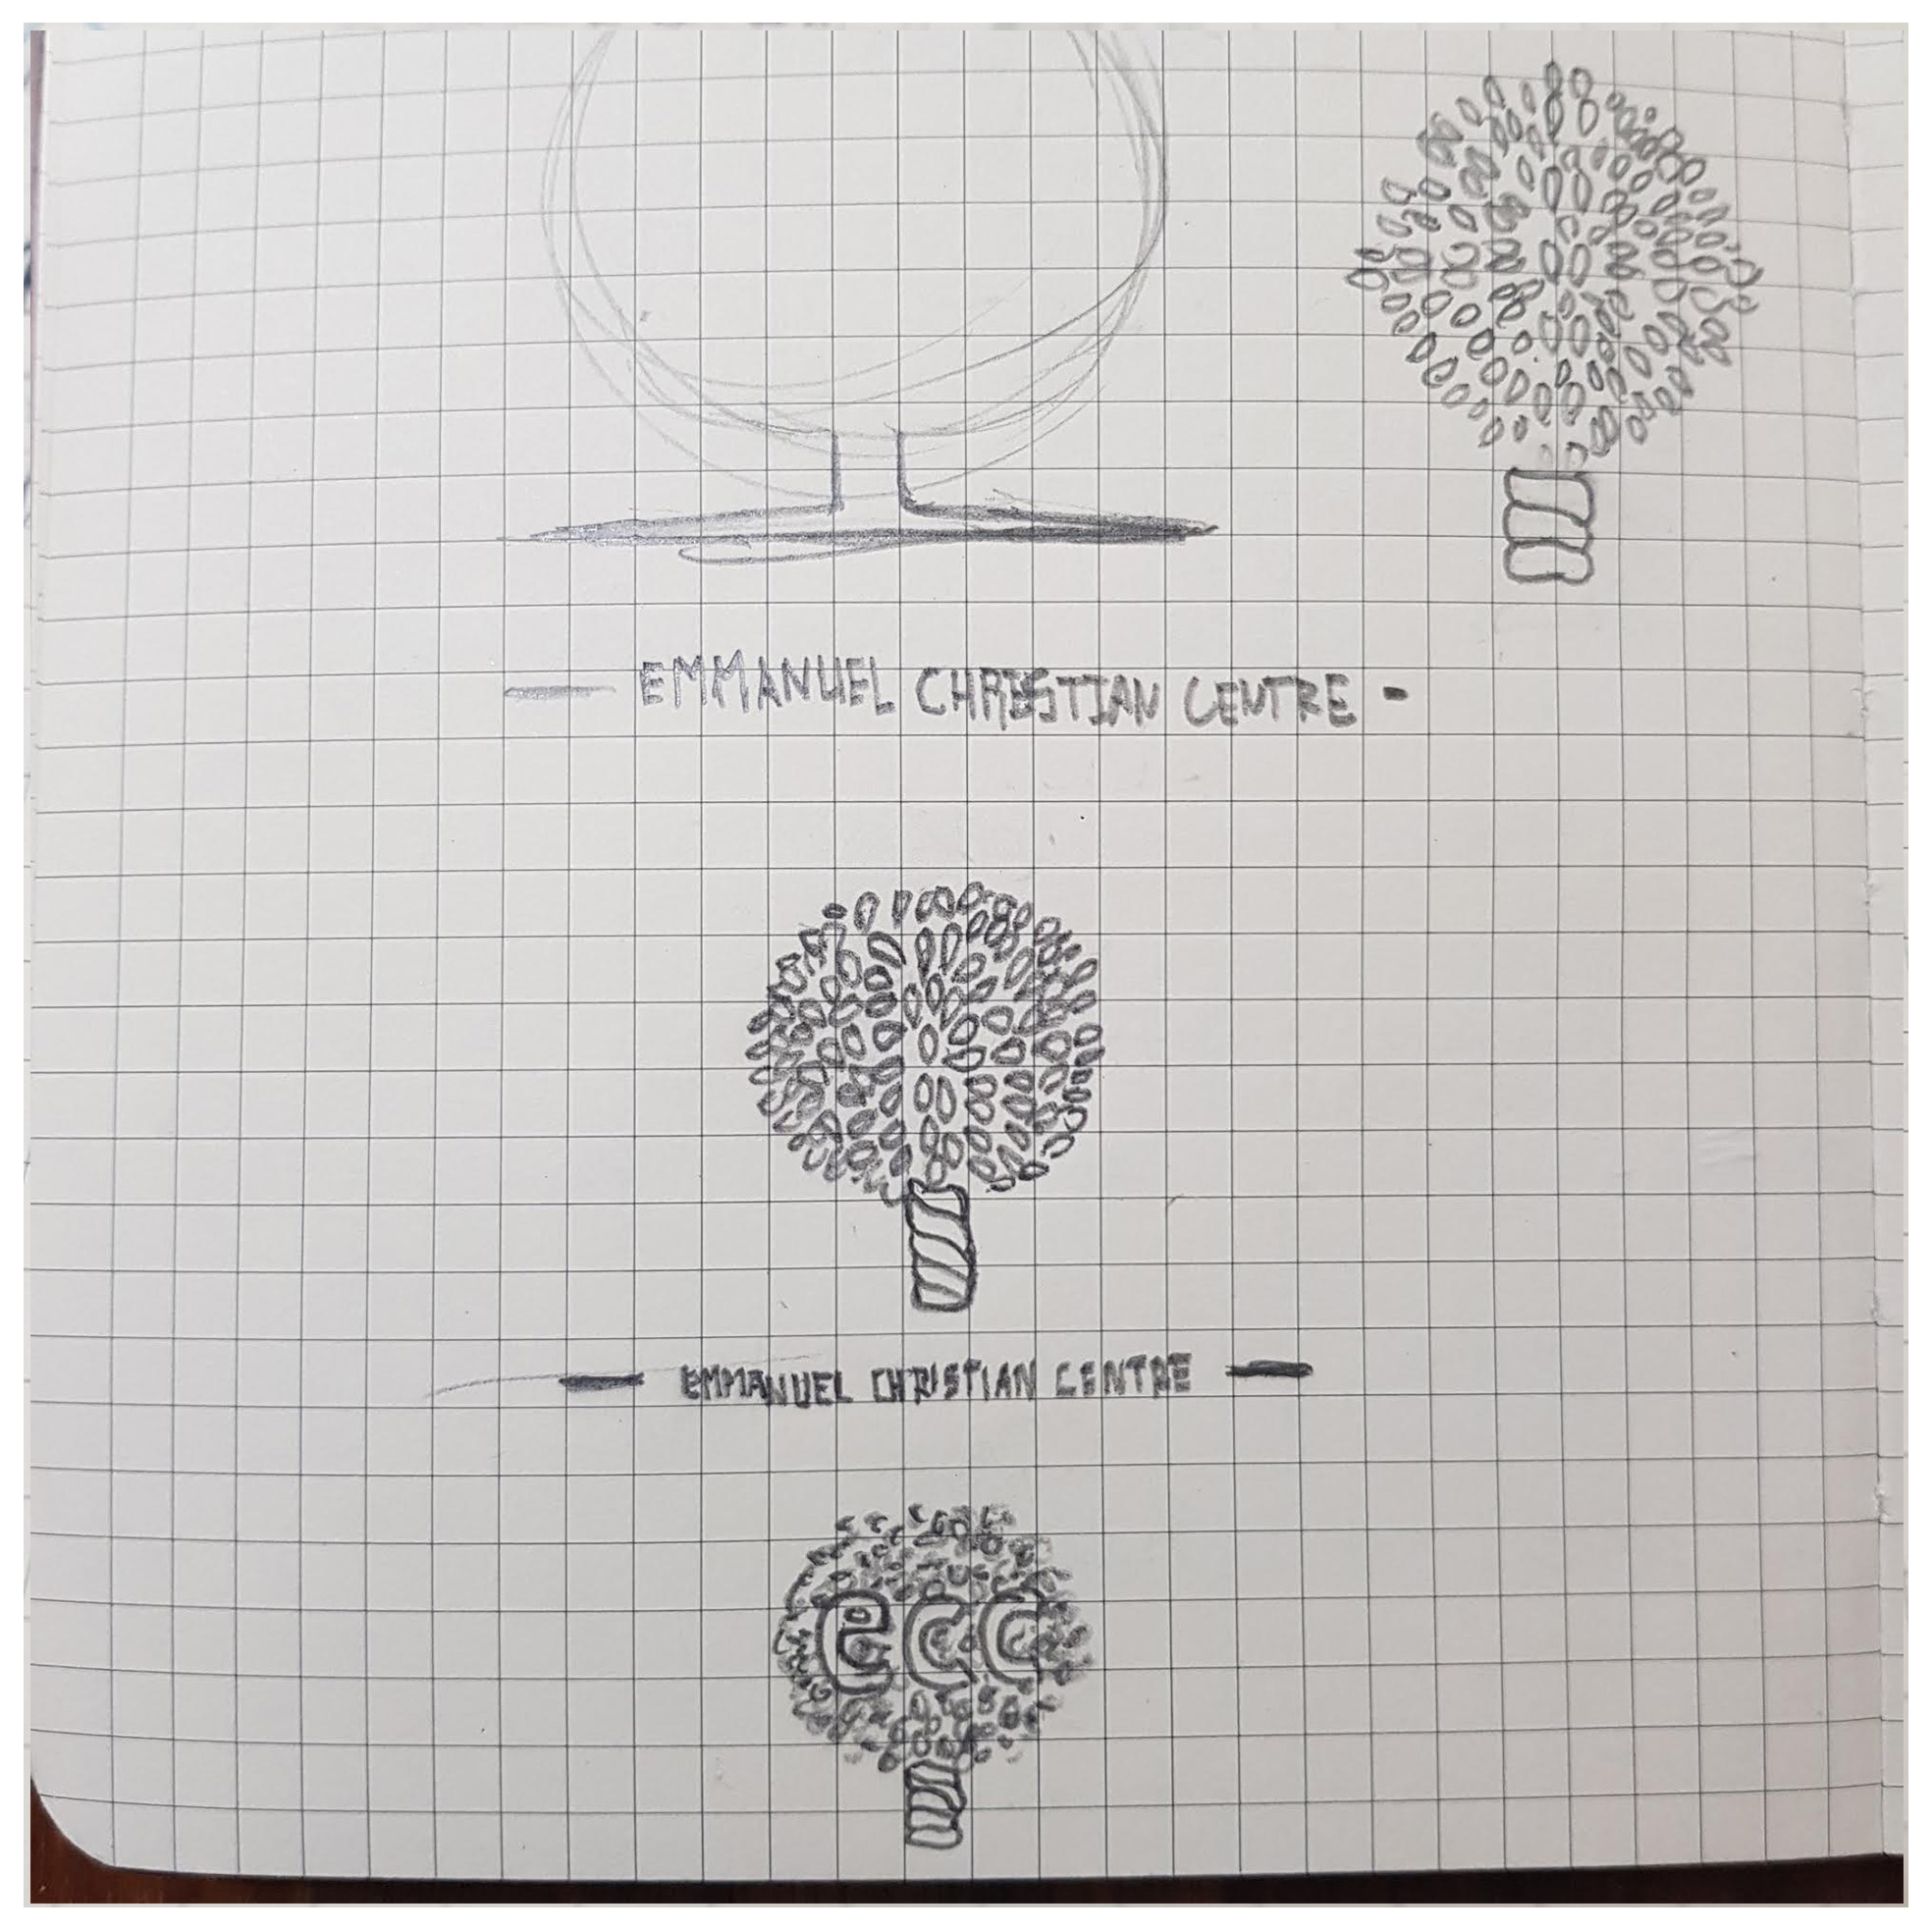 — EMMANUEL CHRISTIAN CENTRE -
— EMMANUEL CHRISTIAN CENTRE —
ecc